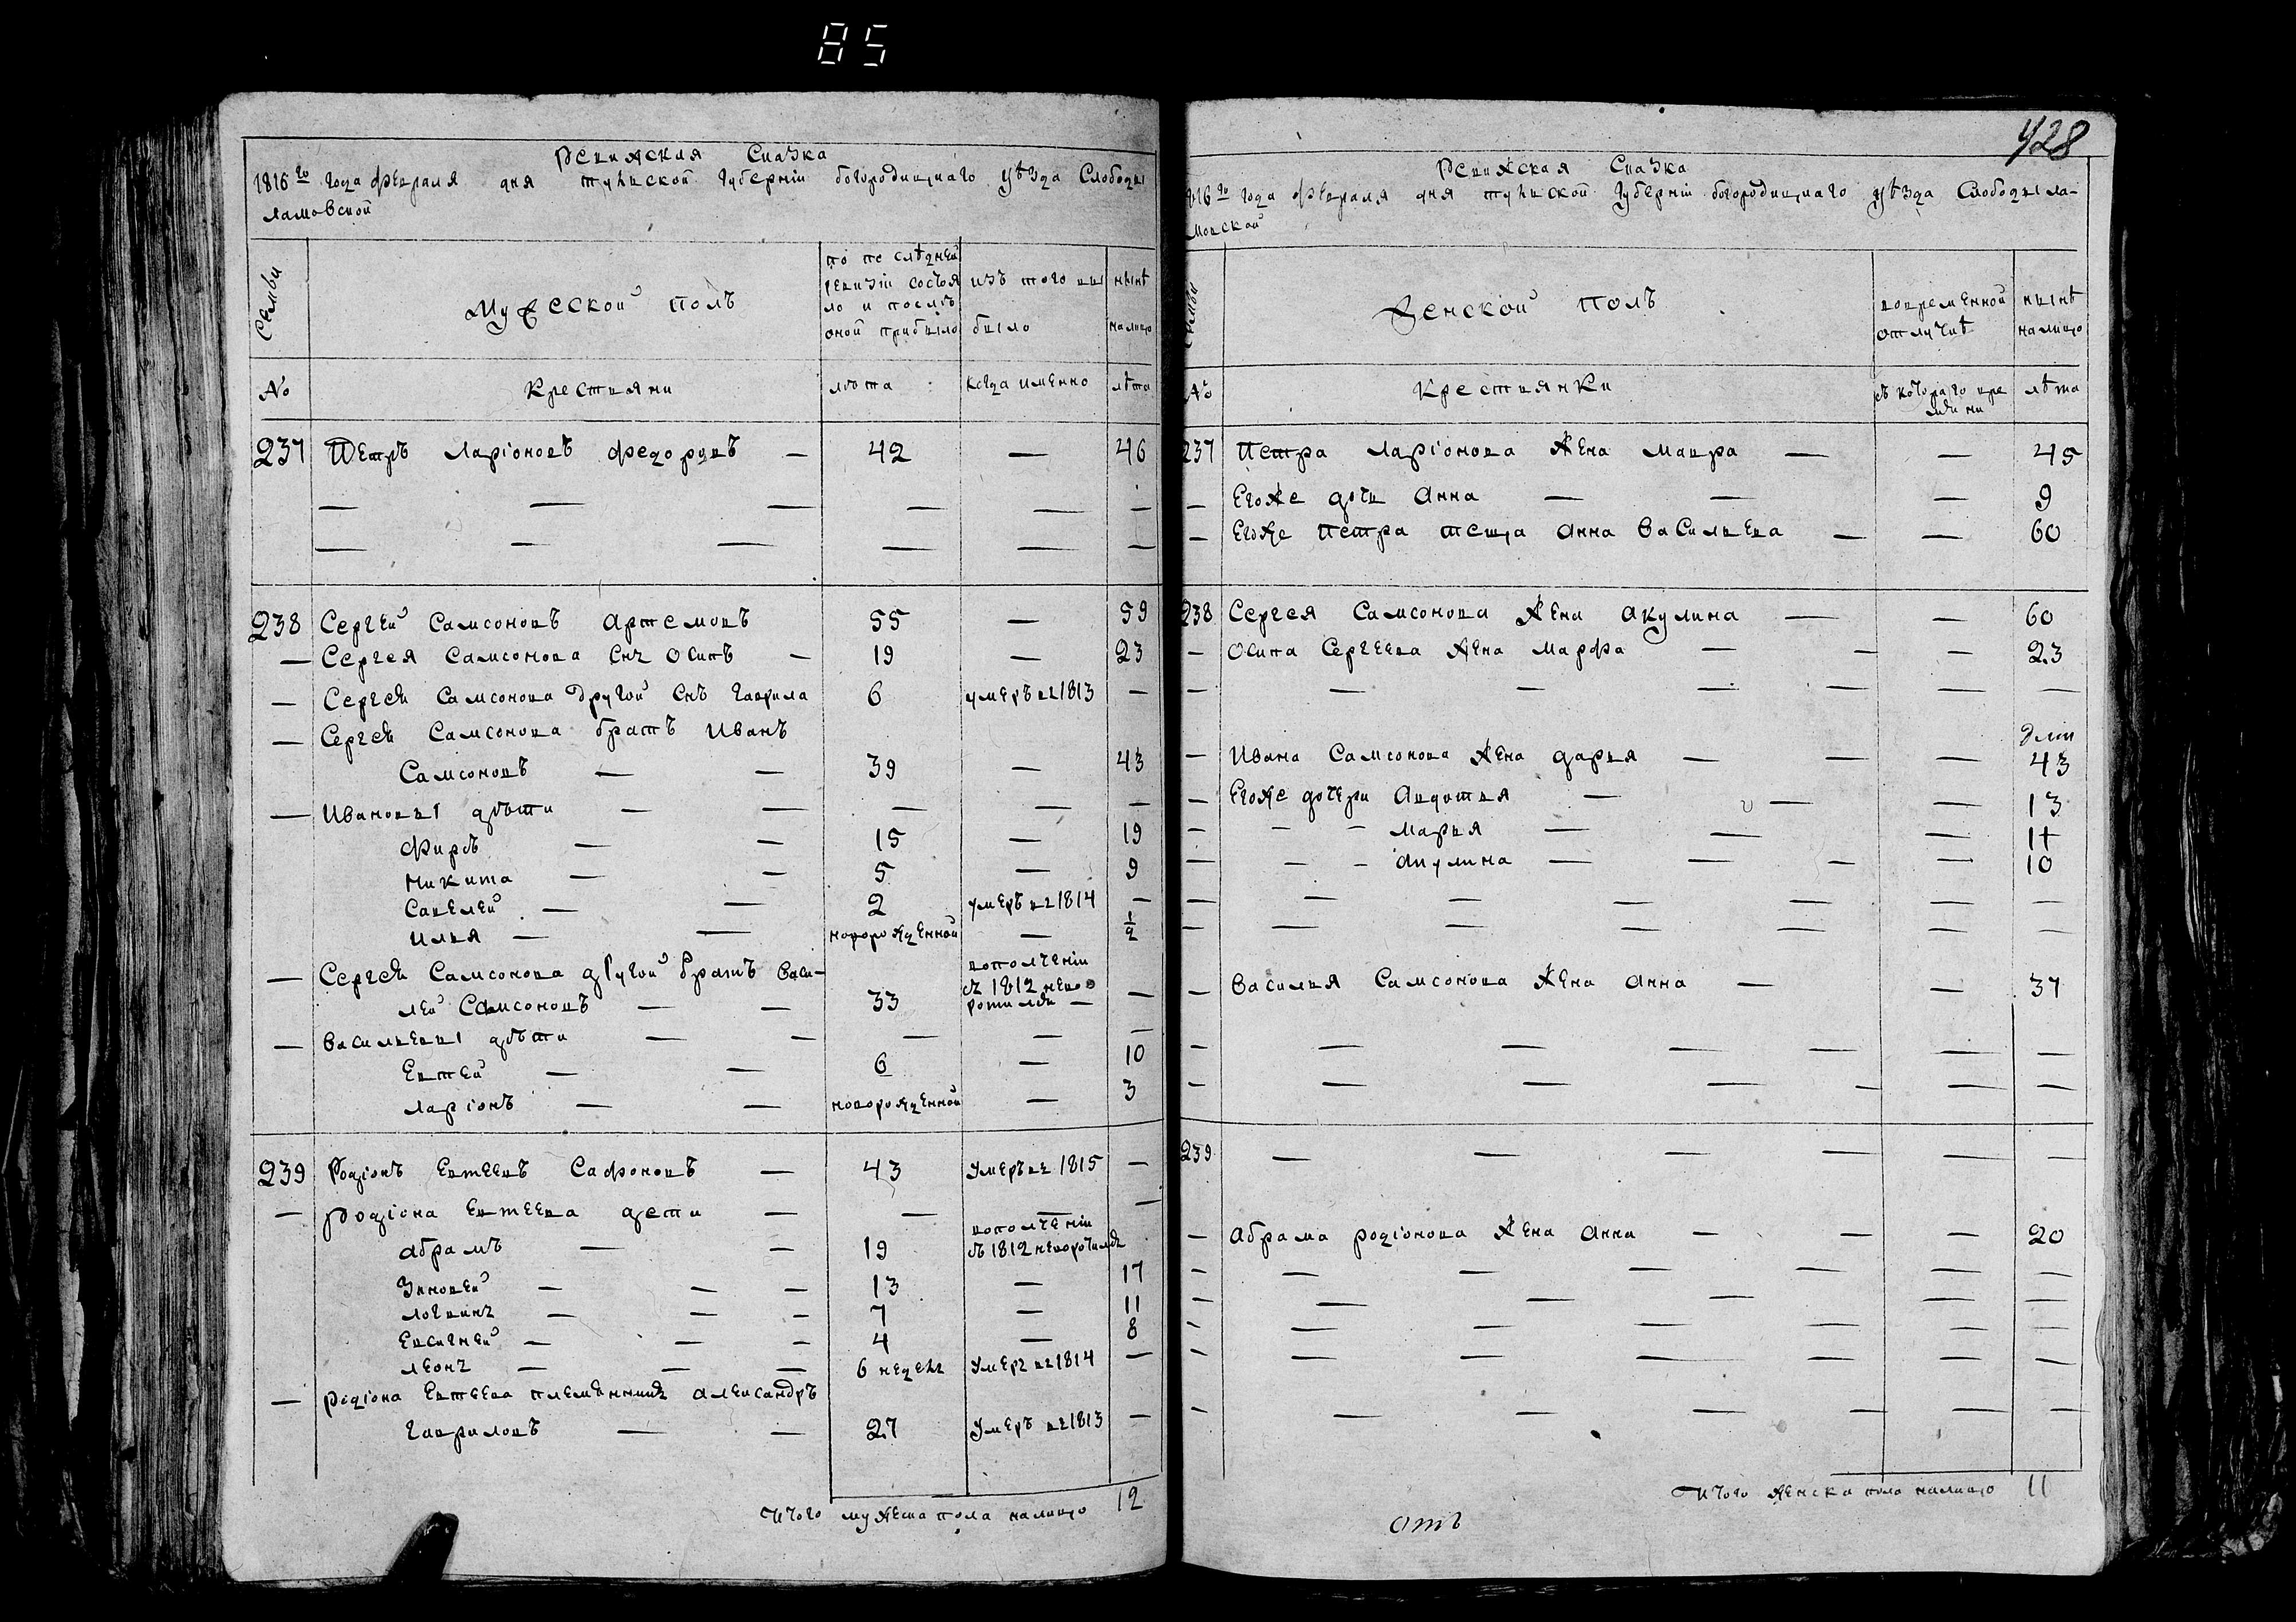 85
428
Ревижская Сказка
1816го года февраля дня тульской губернии богородицкаго уѣзда Слободы
ламовской
Семьи
Мужеской полъ
по последней ревизіи состояло и послѣ оной прибыло
изъ того выбыло
нынѣ налицо
№
Крестьяни
лѣта
когда именно
лѣта
237 Петръ Ларіоновъ Федоровъ — 42 — 46
238 Сергей Самсоновъ Артемовъ 55 — 59
— Сергея Самсонова Снъ Осипъ — 19 — 23
— Сергея Самсонова другой Снъ Гаврила 6 умеръ въ 1813 —
— Сергея Самсонова братъ Иванъ
Самсоновъ — — 39 — 43
— Ивановы дѣти — — — — —
Фирсъ — — 15 — 19
Никита — — 5 — 9
Савелей — — 2 умеръ въ 1814 —
Илья — — новорожденной — 1/2
— Сергея Самсонова другой братъ Васи-
лей Самсоновъ — — 33 вополченіи съ 1812 неворотился — —
— Васильевы дѣти — — — — —
Евтей — — 6 — 10
Ларіонъ — — новорожденной — 3
239 Родіонъ Евтеевъ Сафоновъ — 43 умеръ въ 1815 —
— Родіона Евтеева дети — — — —
Абрамъ — — 19 вополченіи съ 1812 неворотился
Зиновей — — — 13 — 17
Логвинъ — — — 7 — 11
Евсигней — — — 4 — 8
Леонъ — — — 6 недель умеръ въ 1814 —
— Родіона Евтеева племянникъ Александръ
Гавриловъ — — 27 умеръ въ 1813 —
Итого мужеска пола налицо 12
Ревижская Сказка
816го года Февраля дня тульской губерніи богородицкаго уѣзда Слободы ла-
мовской
Семьи
Женской полъ
вовременной отлучкѣ
нынѣ налицо
№
Крестьянки
съ котораго времяни
лѣта
237 Петра Ларіонова жена Мавра — — 45
— Егоже дочь Анна — — — 9
— Егоже Петра теща Анна Васильева — — 60
238 Сергея Самсонова жена Акулина — — 60
— Осипа Сергеева жена Марфа — — — 23
— Ивана Самсонова жена Дарья — — — 43
— Егоже дочери Авдотья — — — 13
— — — Марья — — — 11
— — — Акулина — — — — 10
— Василья Самсонова жена Анна — — 37
239 — — — — — —
— Абрама Родіонова жена Анна — — — 20
Итого женска пола налицо 11
Отъ